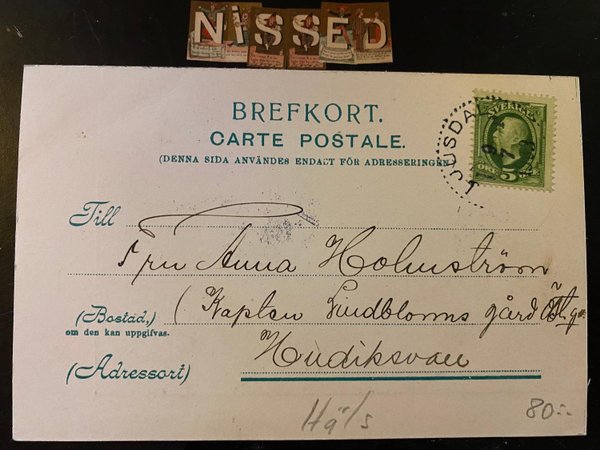 NISSED
BREFKORT.
CARTE POSTALE.
(DENNA SIDA ANVÄNDES ENDAST FÖR ADRESSERINGEN)
LJUSDAL
SVERIGE
5
ÖRE
Till
Fru Anna Holmström
(Bostad,)
om den kan uppgifvas.
(Kaplan Lindbloms gård
(Adressort)
Hudiksvall
Hä/s
80:-